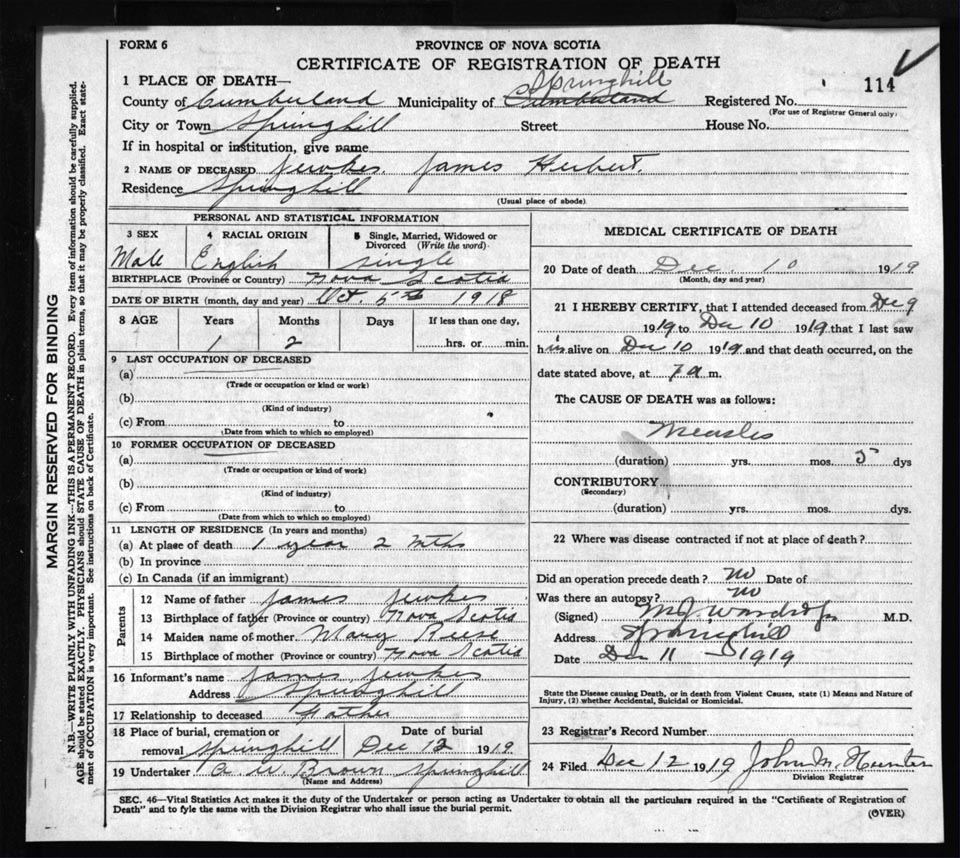 FORM 6
PROVINCE OF NOVA SCOTIA
CERTIFICATE OF REGISTRATION OF DEATH
114
1 PLACE OF DEATH—
Springhill
County of Cumberland Municipality of Cumberland Registered No.
(For use of Registrar General only)
City or Town Springhill Street House No.
If in hospital or institution, give name
2 NAME OF DECEASED Jewkes. James Herbert.
Residence Springhill
(Usual place of abode)
PERSONAL AND STATISTICAL INFORMATION
3 SEX 4 RACIAL ORIGIN 5 Single, Married, Widowed or Divorced (Write the word)
Male English Single
BIRTHPLACE (Province or Country) Nova Scotia
DATE OF BIRTH (month, day and year) Oct. 5th 1918
8 AGE Years Months Days If less than one day,
1 2 hrs. or min.
9 LAST OCCUPATION OF DECEASED
(a)
(Trade or occupation or kind or work)
(b)
(Kind of industry)
(c) From to
(Date from which to which so employed)
10 FORMER OCCUPATION OF DECEASED
(a)
(Trade or occupation or kind of work)
(b)
(Kind of industry)
(c) From to
(Date from which to which so employed)
11 LENGTH OF RESIDENCE (In years and months)
(a) At place of death 1 year 2 mths
(b) In province
(c) In Canada (if an immigrant)
Parents
12 Name of father James Jewkes
13 Birthplace of father (Province or country) Nova Scotia
14 Maiden name of mother Mary Reese
15 Birthplace of mother (Province or country) Nova Scotia
16 Informant's name James Jewkes
Address Springhill
17 Relationship to deceased Father
18 Place of burial, cremation or Date of burial
removal Springhill Dec 12 1919
19 Undertaker Brown Springhill
(Name and Address)
MEDICAL CERTIFICATE OF DEATH
20 Date of death Dec. 10 1919
(Month, day and year)
21 I HEREBY CERTIFY, that I attended deceased from Dec 9
1919 to Dec 10 1919 that I last saw
him alive on Dec 10 1919 and that death occurred, on the
date stated above, at 7 a m.
The CAUSE OF DEATH was as follows:
Measles
(duration) yrs. mos. 5 dys
CONTRIBUTORY
(Secondary)
(duration) yrs. mos. dys.
22 Where was disease contracted if not at place of death?
Did an operation precede death? no Date of
Was there an autopsy? no
(Signed) M.D.
Address Springhill
Date Dec 11 1919
State the Disease causing Death, or in death from Violent Causes, state (1) Means and Nature of
Injury, (2) whether Accidental, Suicidal or Homicidal.
23 Registrar's Record Number
24 Filed Dec 12 1919 John M. Hunter
Division Registrar
SEC. 46—Vital Statistics Act makes it the duty of the Undertaker or person acting as Undertaker to obtain all the particulars required in the "Certificate of Registration of
Death" and to fyle the same with the Division Registrar who shall issue the burial permit.
(OVER)
MARGIN RESERVED FOR BINDING
N.B.—WRITE PLAINLY WITH UNFADING INK—THIS IS A PERMANENT RECORD. Every item of information should be carefully supplied.
AGE should be stated EXACTLY. PHYSICIANS should STATE CAUSE OF DEATH in plain terms, so that it may be properly classified. Exact state-
ment of OCCUPATION is very important. See instructions on back of Certificate.